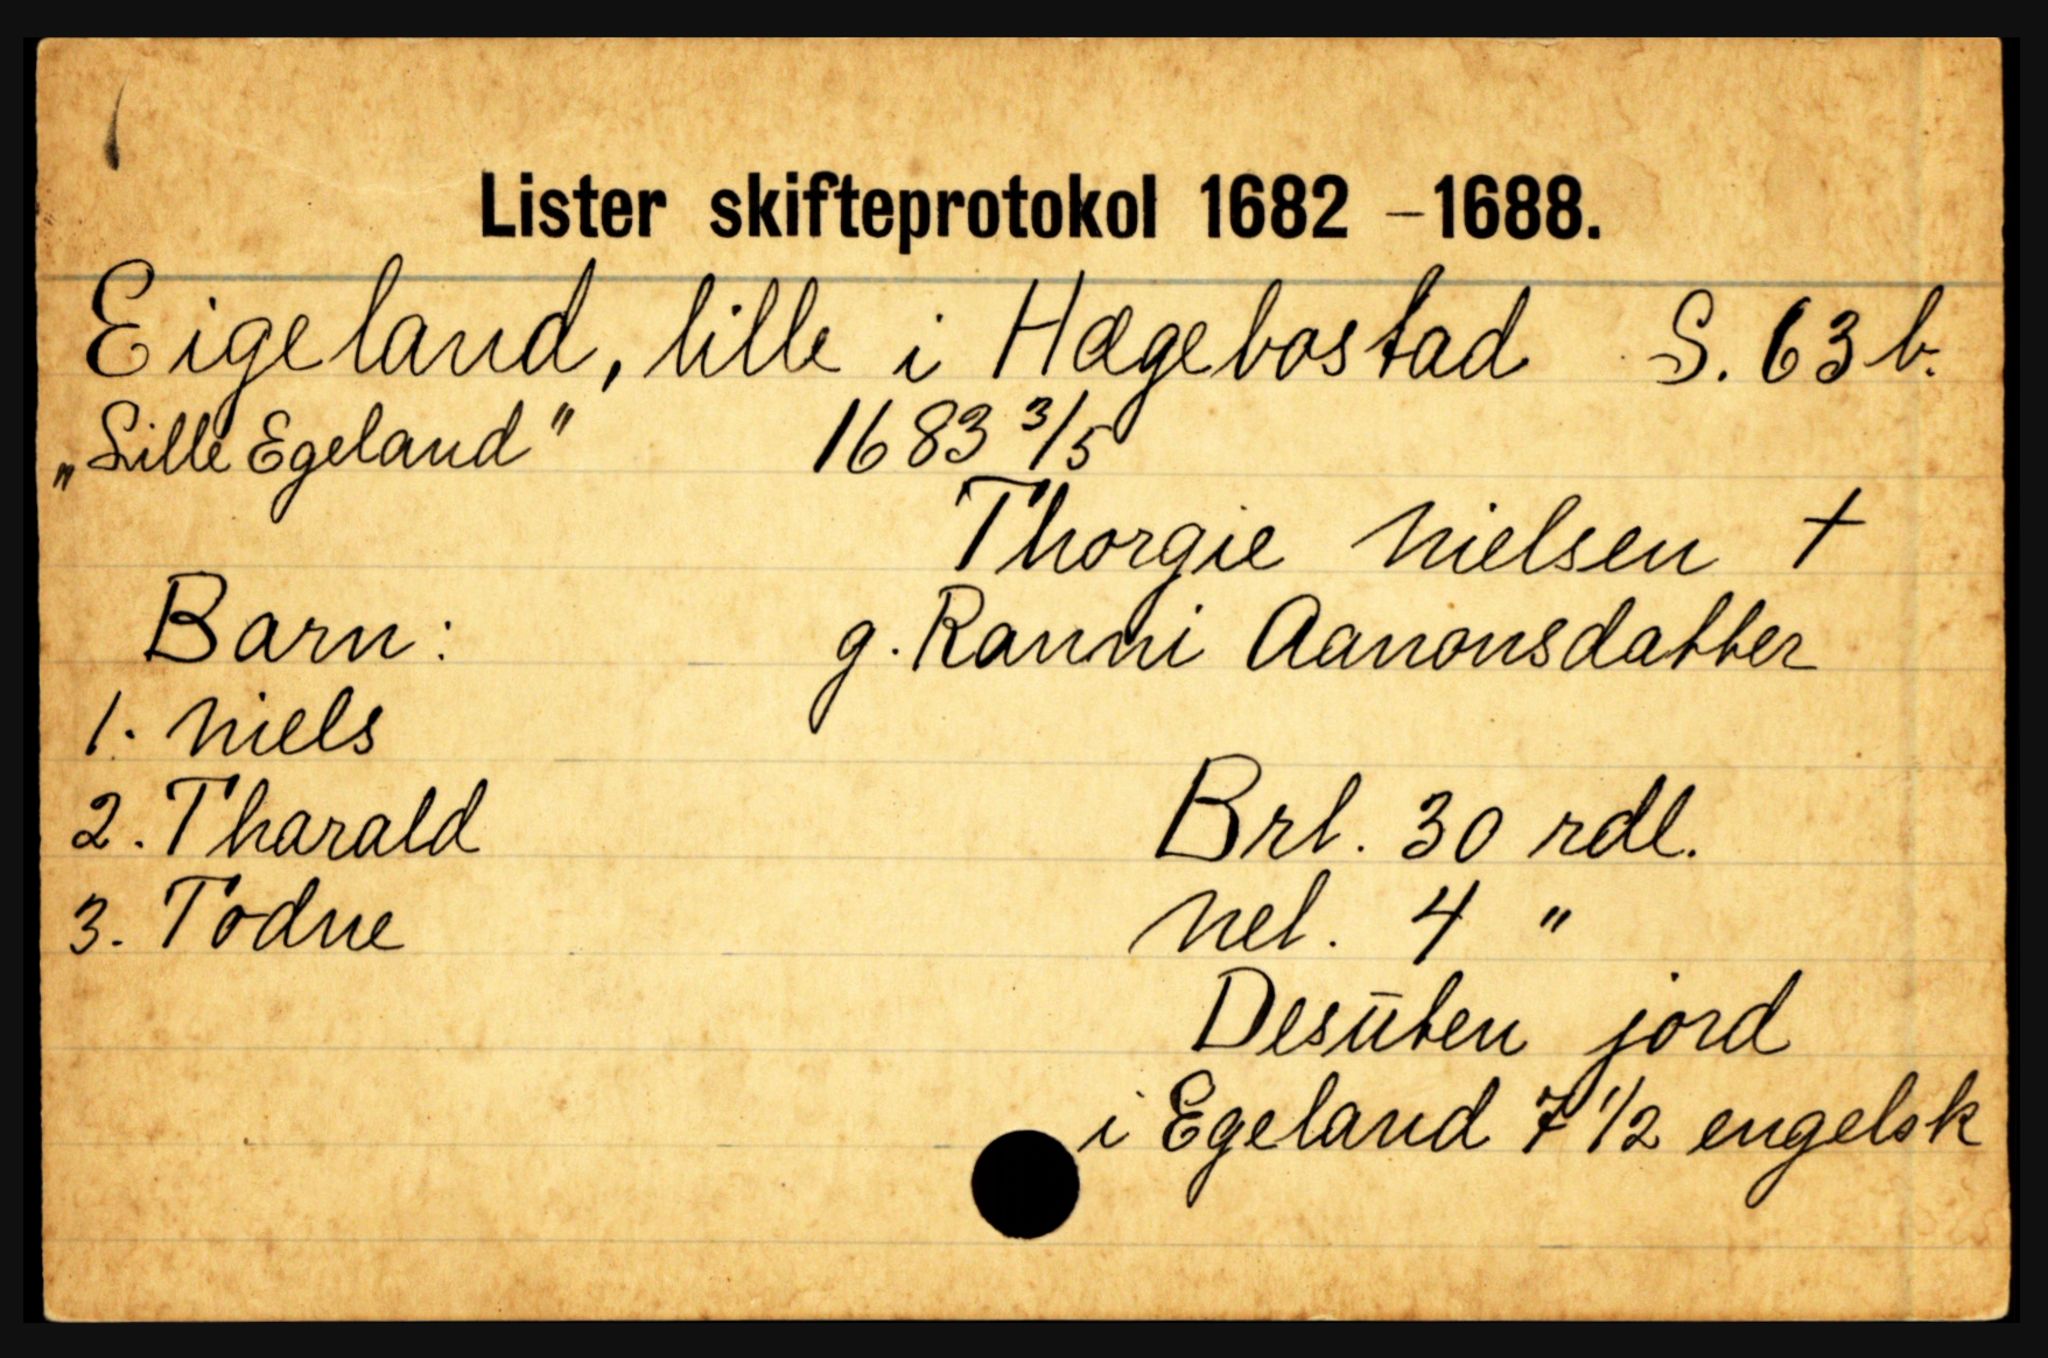 Lister skifteprotokol 1682 – 1688.
Eigeland, lille i Hægebostad S. 63 b.
„Lille Egeland" 1683 3/5
Thorgie Nielsen †
Barn: g. Ranni Aanonsdatter
1. Niels
2. Tharald Brl. 30 rdl.
3. Todne Nel. 4 "
Desūten jord
i Egeland 7 1/2 engelsk